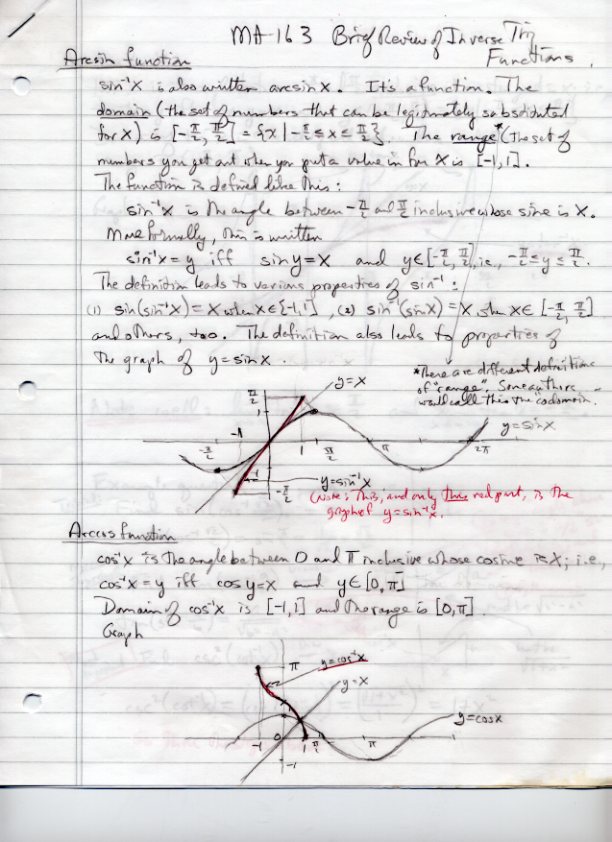 MA 163 Brief Review of Inverse Trig
Functions.
Arcsin function
sin⁻¹x is also written arcsin x. It's a function. The
domain (the set of numbers that can be legitimately substituted
for x) is [-π/2, π/2] = {x | -π/2 ≤ x ≤ π/2}. The range* (the set of
numbers you get out when you put a value in for x is [-1,1].
The function is defined like this:
sin⁻¹x is the angle between -π/2 and π/2 inclusive whose sine is x.
More formally, this is written
sin⁻¹x = y iff sin y = x and y∈[-π/2, π/2], i.e., -π/2 ≤ y ≤ π/2.
The definition leads to various properties of sin⁻¹:
(1) sin(sin⁻¹x) = x when x∈[-1,1], (2) sin⁻¹(sin x) = x when x∈ [-π/2, π/2]
and others, too. The definition also leads to properties of
the graph of y = sin x.
*There are different definitions
of "range". Some authors
would call this the "codomain.
π/2
y=x
1
y=sin x
-π/2
-1
1
π/2
π
2π
-1
y=sin⁻¹x
-π/2
(Note: This, and only this red part, is the
graph of y=sin⁻¹x.
Arccos function
cos⁻¹x is the angle between 0 and π inclusive whose cosine is x; i.e.,
cos⁻¹x = y iff cos y = x and y∈[0, π]
Domain of cos⁻¹x is [-1,1] and the range is [0,π].
Graph
π
y=cos⁻¹x
y=x
y=cos x
0
-1
1
π/2
π
-1